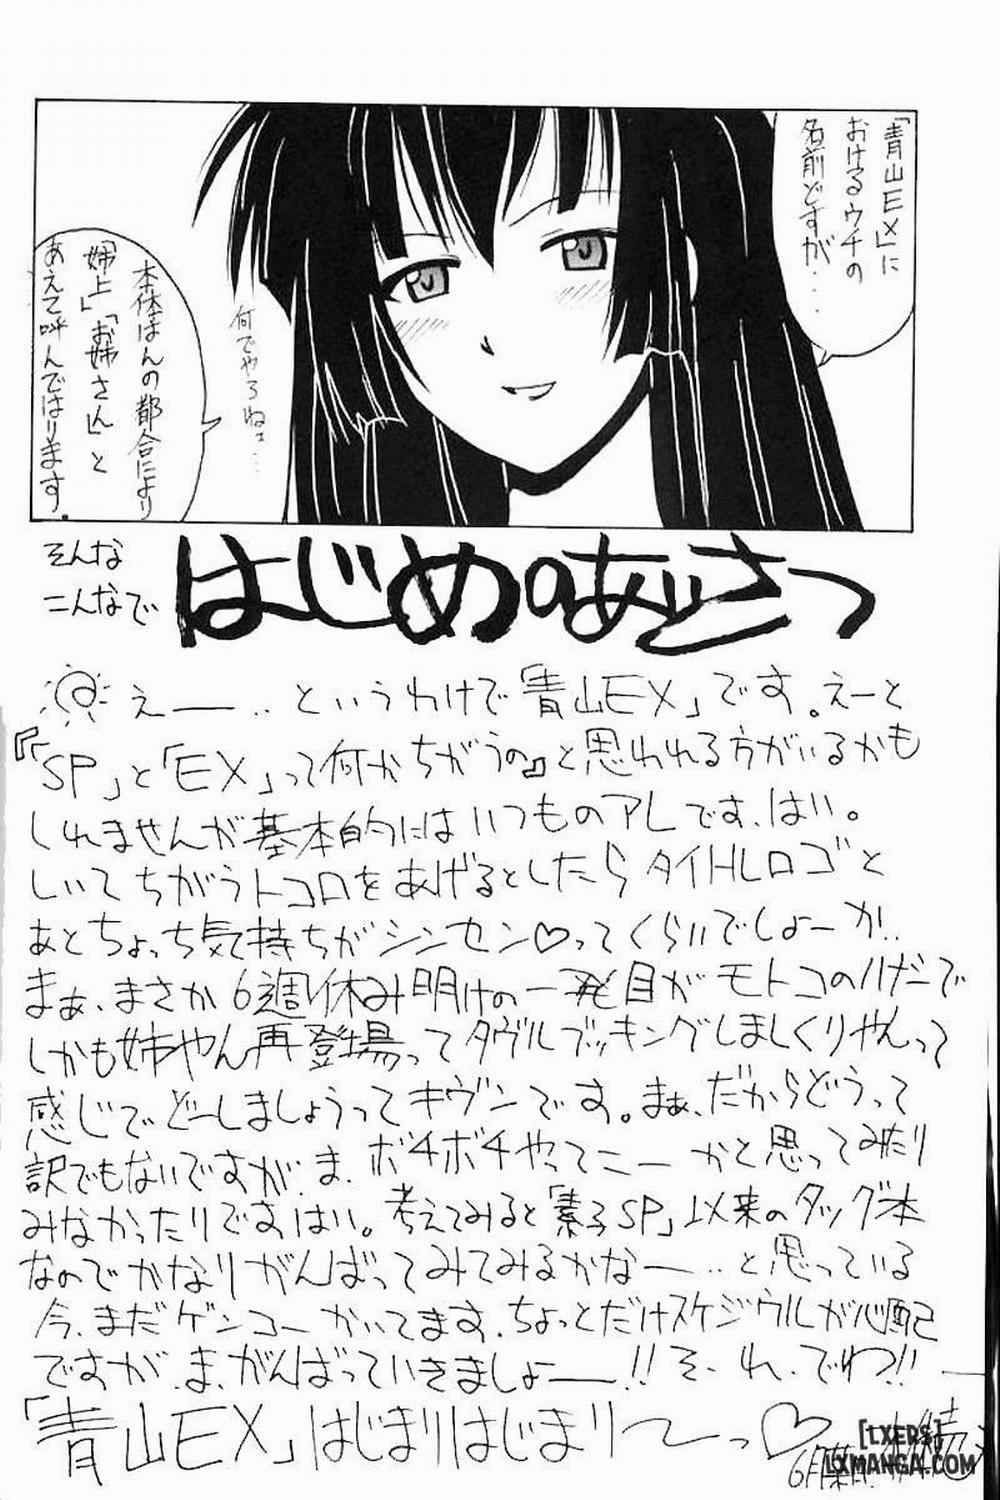 「青山EX」に
おけるウチの
名前どすが...
何でやろねェ...
本体はんの都合により
「姉上」「お姉さん」と
あえて呼んではります。
そんな
こんなで
はじめのあいさつ
えー‥というわけで「青山EX」です。えーと
『「SP」と「EX」って何がちがうの』と思われる方がいるかも
しれませんが基本的にはいつものアレです、はい。
しいてちがうトコロをあげるとしたらタイトルロゴと
あとちょっち気持ちがシンセン♡ってくらいでしょーか‥
まぁ、まさか6週休み明けの一発目がモトコのハナシで
しかも姉やん再登場ってダヴルブッキングしましくりやんって
感じで、どーしましょうってキヴンです。まぁ、だからどうって
訳でもないですが、ま、ボチボチやってこーかと思ってみたり
みなかったりですはい。考えてみると「素子SP」以来のタッグ本
なのでかなりがんばってみてみるかなー‥と思っている
今、まだゲンコーかいてます、ちょっとだけスケジウルが心配
ですが、ま、がんばっていきましょー!!そ、れ、でわ!!
「青山EX」はじまりはじまり〜っ♡
[LXERS]
LXMANGA.COM